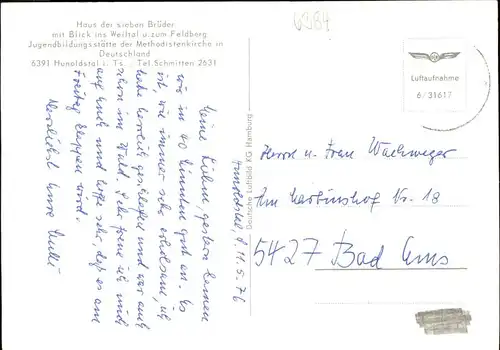 Haus der sieben Brüder
mit Blick ins Weiltal u. zum Feldberg
Jugendbildungsstätte der Methodistenkirche in
Deutschland
6391 Hunoldstal i. Ts., Tel. Schmitten 2631
6984
Luftaufnahme
6/31617
Deutsche Luftbild KG Hamburg
Hunoldstal, d. 11.5.76
Meine Lieben, gestern kamen
wir in 40 Minuten gut an. Es
ist, wie immer sehr erholsam, ich
habe herrlich geschlafen und war auch
schon im Wald. Jetzt freue ich mich
auf euch und hoffe sehr, daß es am
Freitag klappen wird.
Herzlichst Eure
Herrn u. Frau Wachweger
Am Nr. 18
5427 Bad Ems